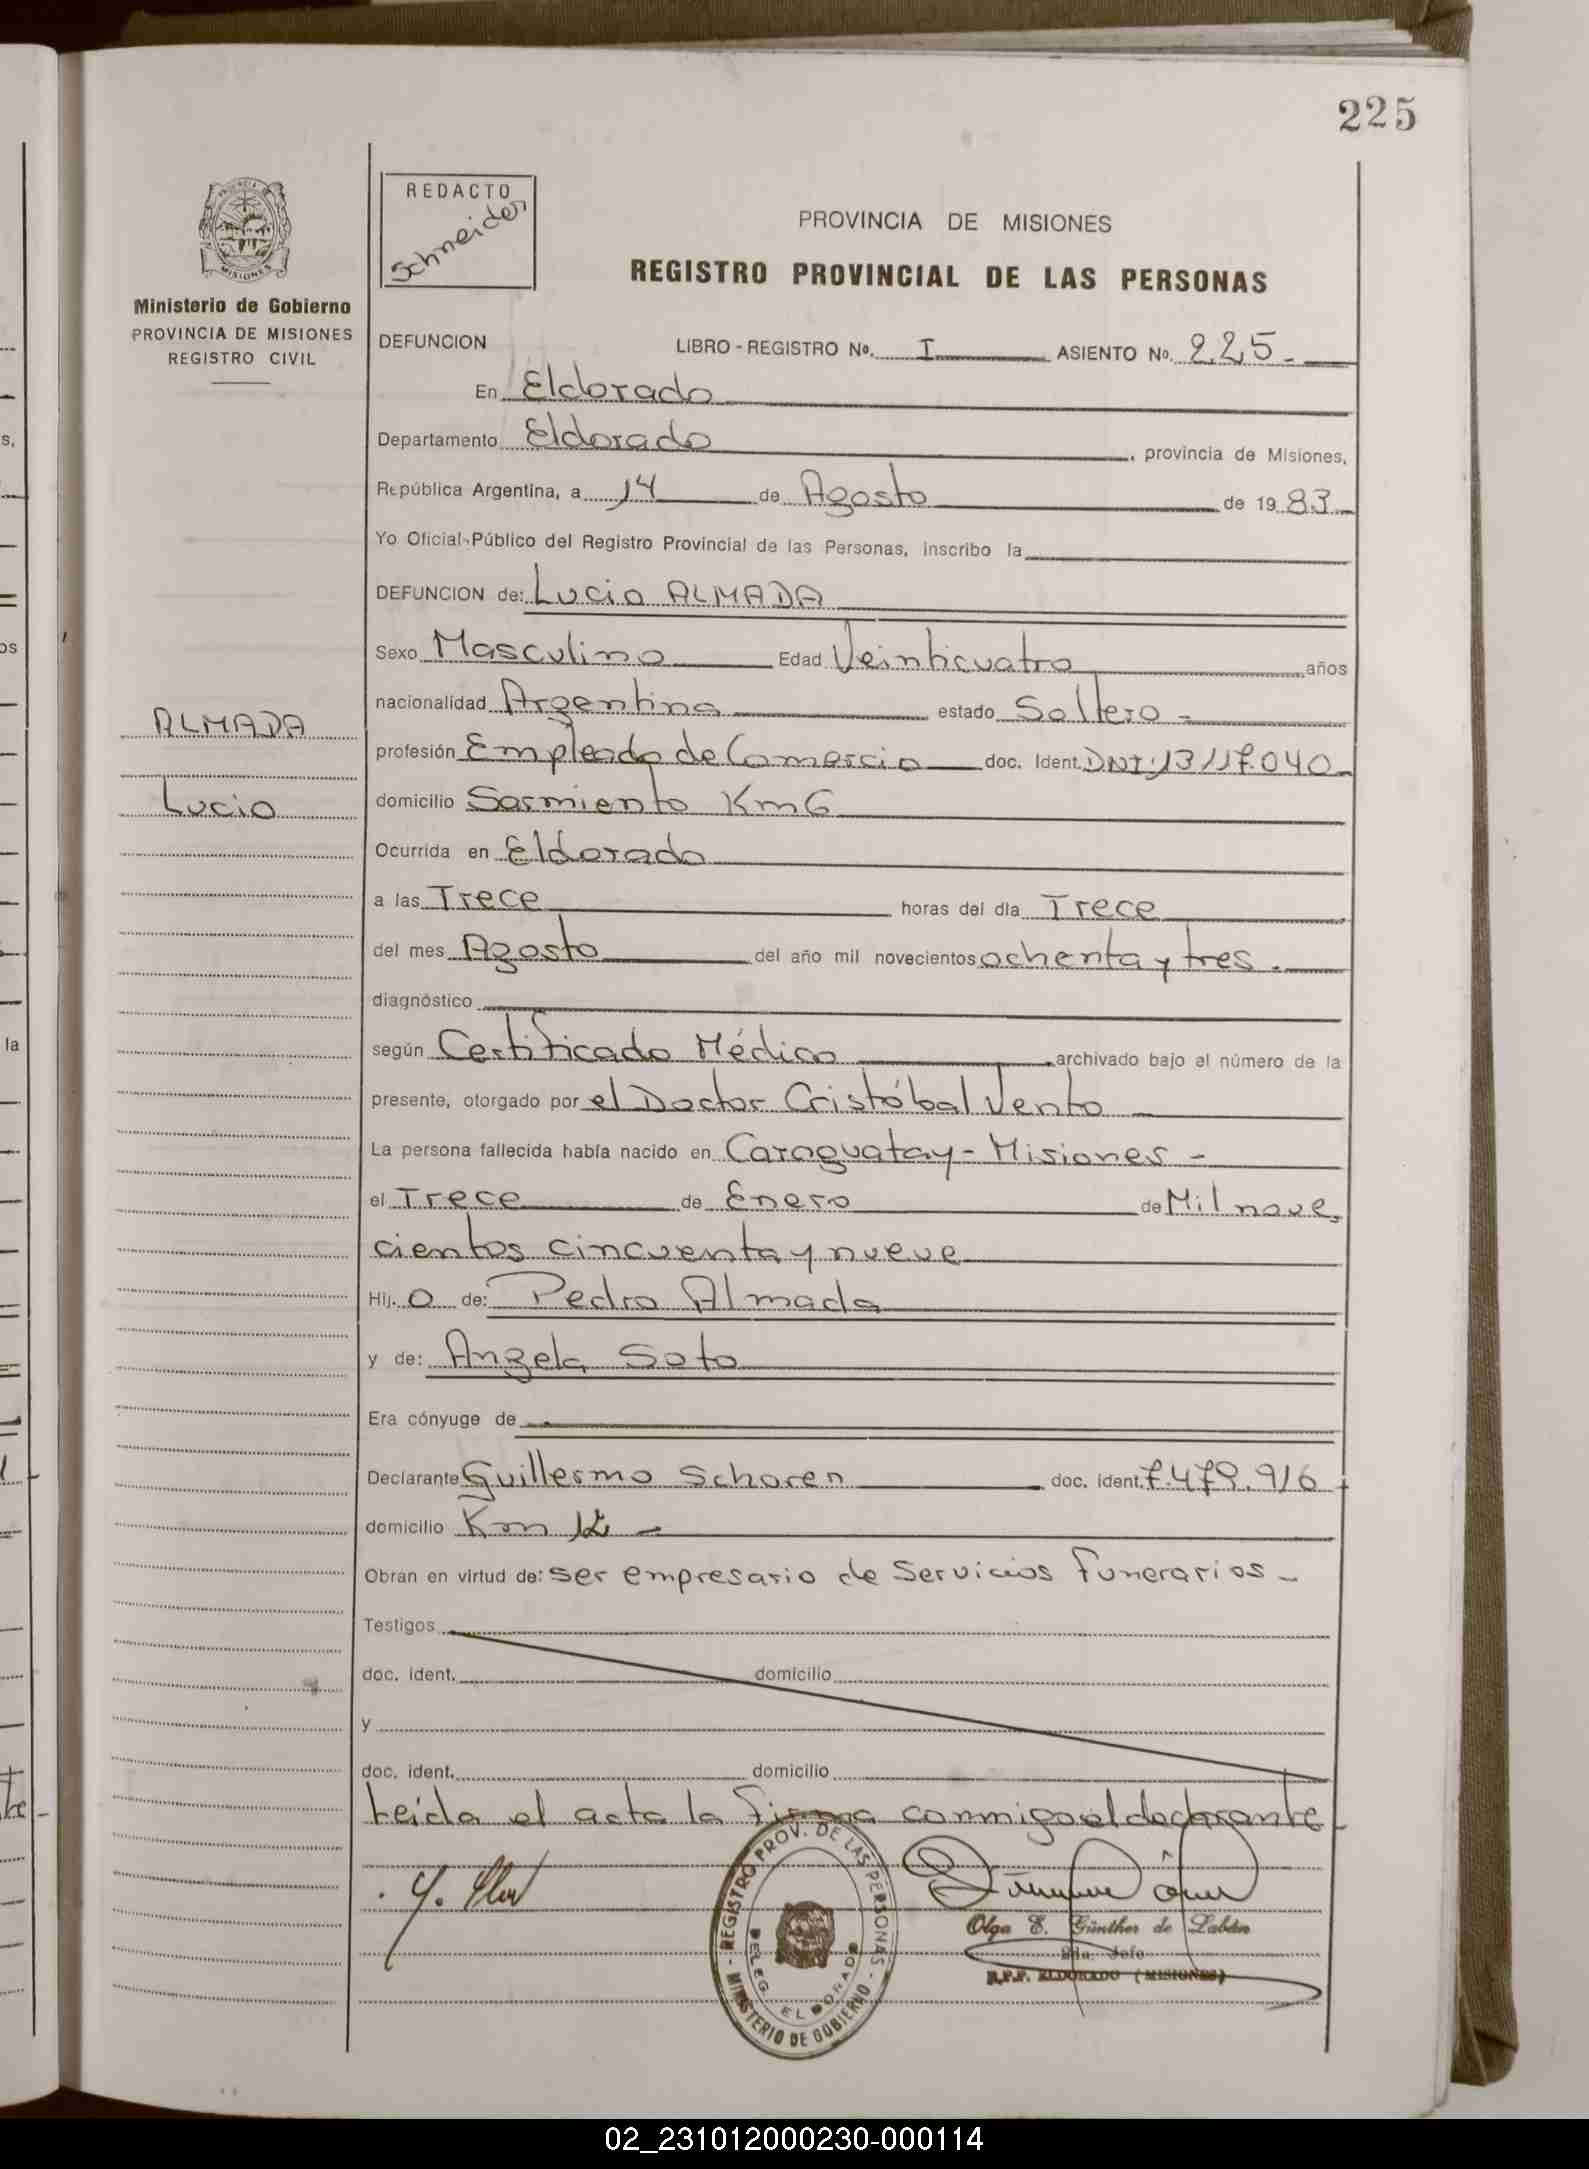 225
REDACTO
Schneider
PROVINCIA DE MISIONES
REGISTRO PROVINCIAL DE LAS PERSONAS
MISIONES
Ministerio de Gobierno
PROVINCIA DE MISIONES
REGISTRO CIVIL
DEFUNCION LIBRO - REGISTRO No. I ASIENTO No. 225.-
En Eldorado
Departamento Eldorado, provincia de Misiones,
República Argentina, a 14 de Agosto de 1983
Yo Oficial Público del Registro Provincial de las Personas, inscribo la
DEFUNCION de: Lucio ALMADA
Sexo Masculino Edad Veinticuatro años
nacionalidad Argentina estado Soltero -
ALMADA
Lucio
profesión Empleado de Comercio doc. Ident. DNI. 13117.040
domicilio Sarmiento Km 6
Ocurrida en Eldorado
a las Trece horas del día Trece
del mes Agosto del año mil novecientos ochenta y tres.
diagnóstico
según Certificado Médico archivado bajo el número de la
presente, otorgado por el Doctor Cristóbal Vento
La persona fallecida había nacido en Caraguatay - Misiones -
el Trece de Enero de Mil nove
cientos cincuenta y nueve
Hij. o de: Pedro Almada
y de: Angela Soto
Era cónyuge de
Declarante Guillermo Schoren doc. ident. 7.479.916
domicilio Km 12 -
Obran en virtud de: ser empresario de Servicios Funerarios -
Testigos
doc. ident. domicilio
y
doc. ident. domicilio
Leída el acta la firma conmigo el declarante
REGISTRO PROV. DE LAS PERSONAS - MINISTERIO DE GOBIERNO -
DELEG. ELDORADO
Olga E. Günther de Labán
Jefe
R.P.P. ELDORADO (MISIONES)
02_231012000230-000114